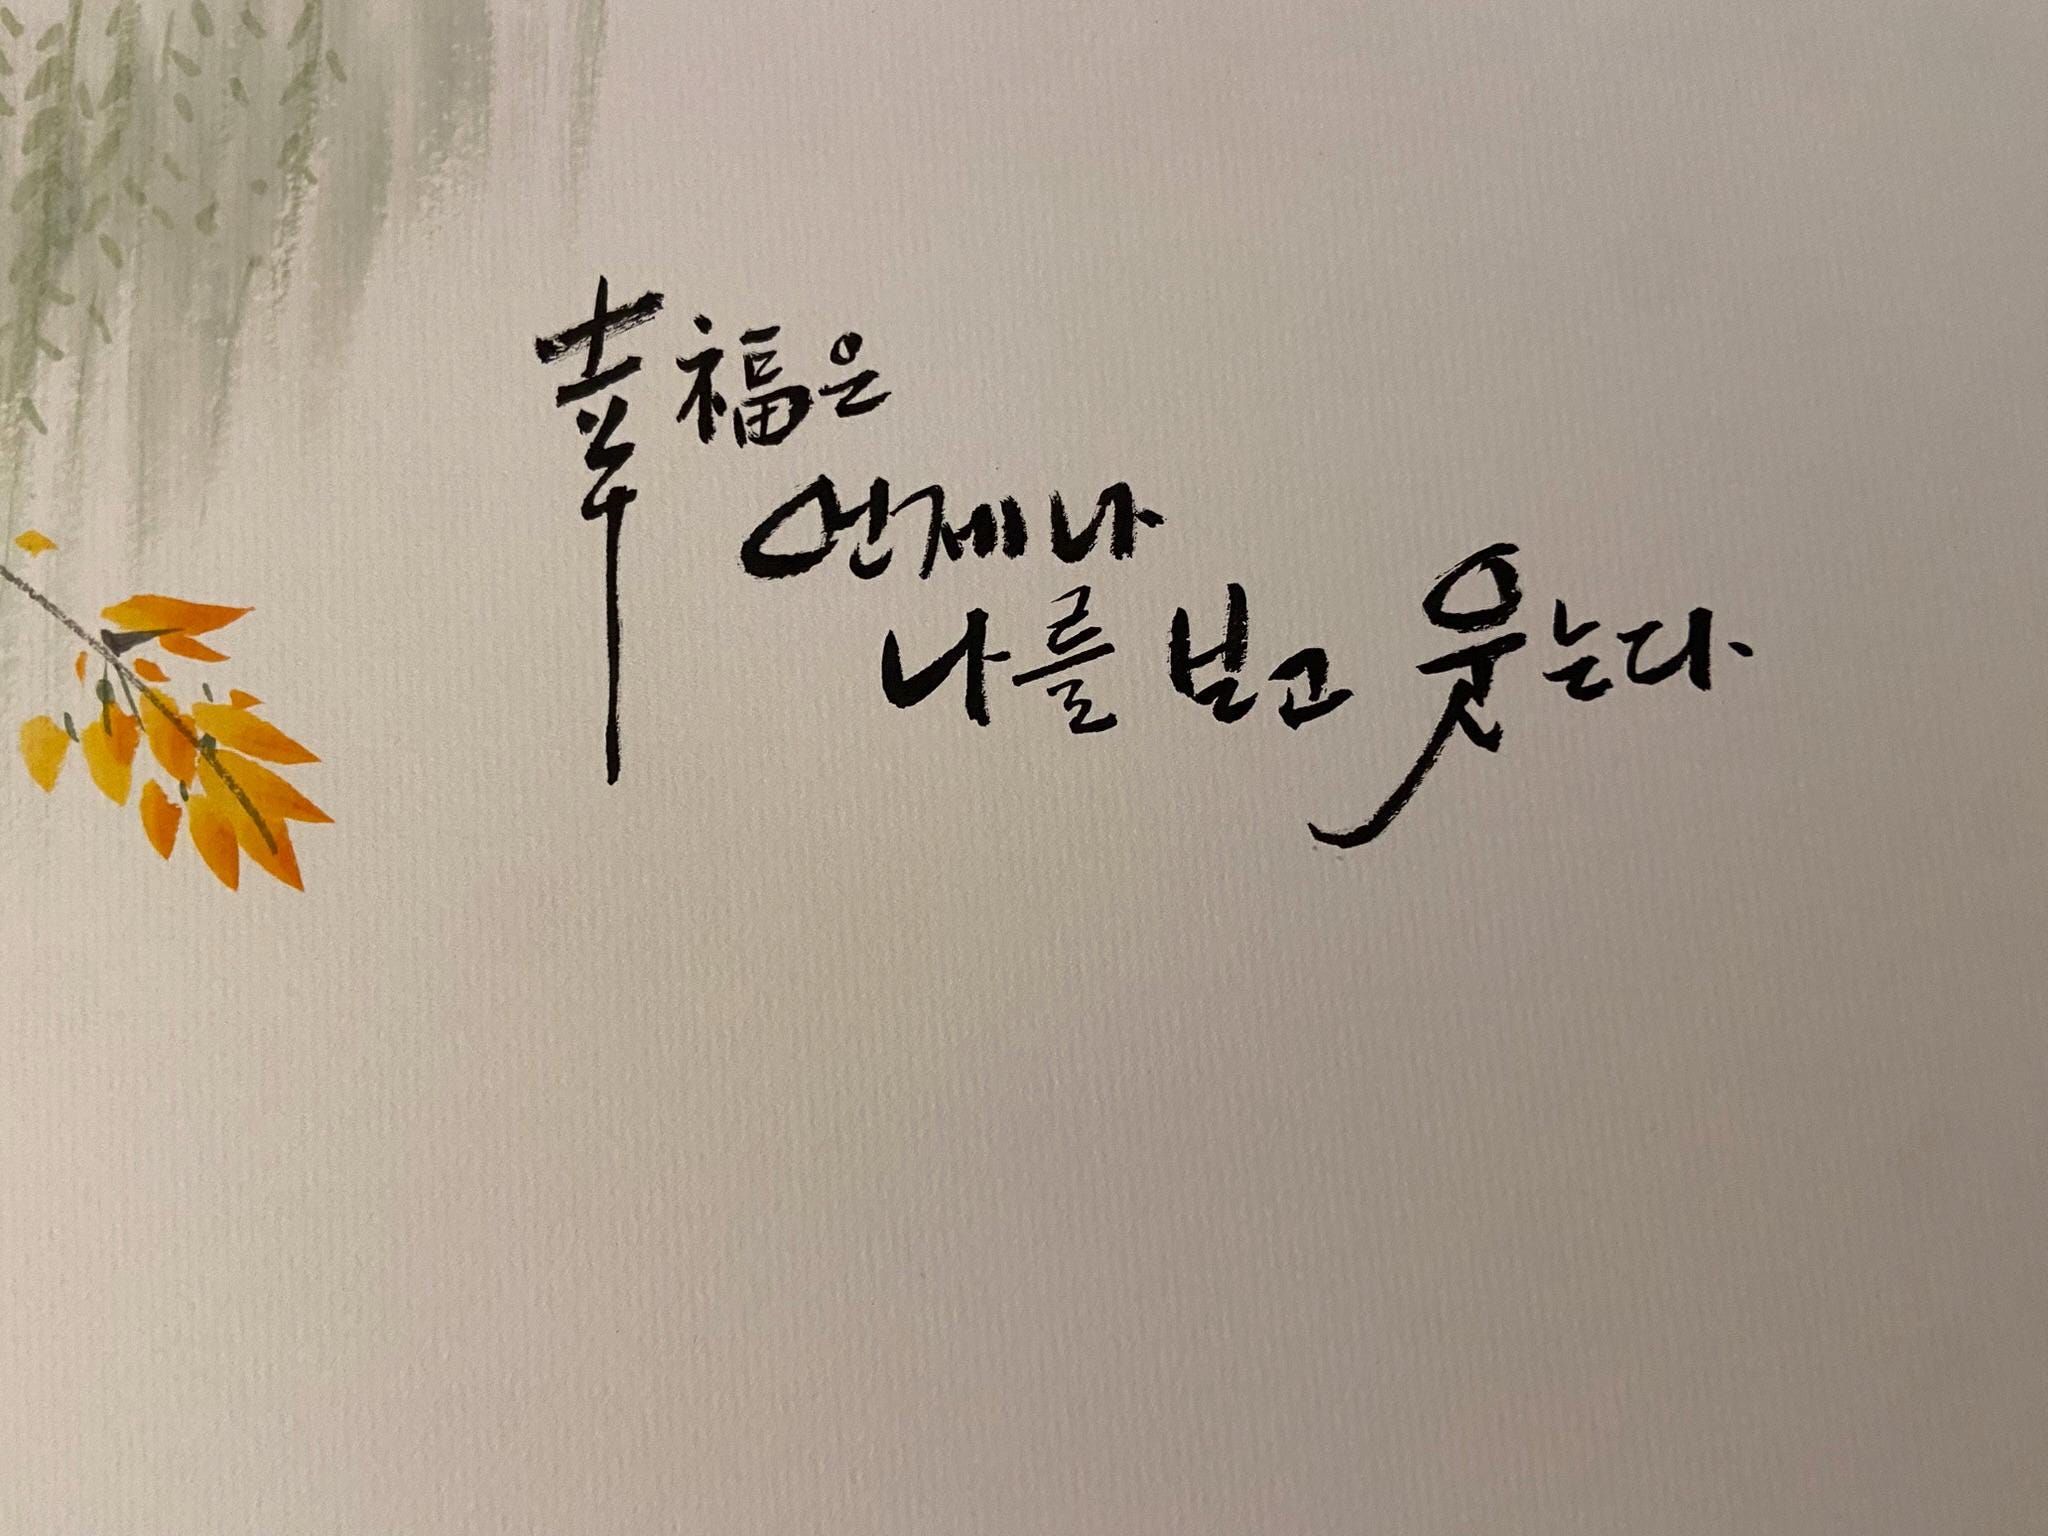 幸福은
언제나
나를 보고 웃는다.